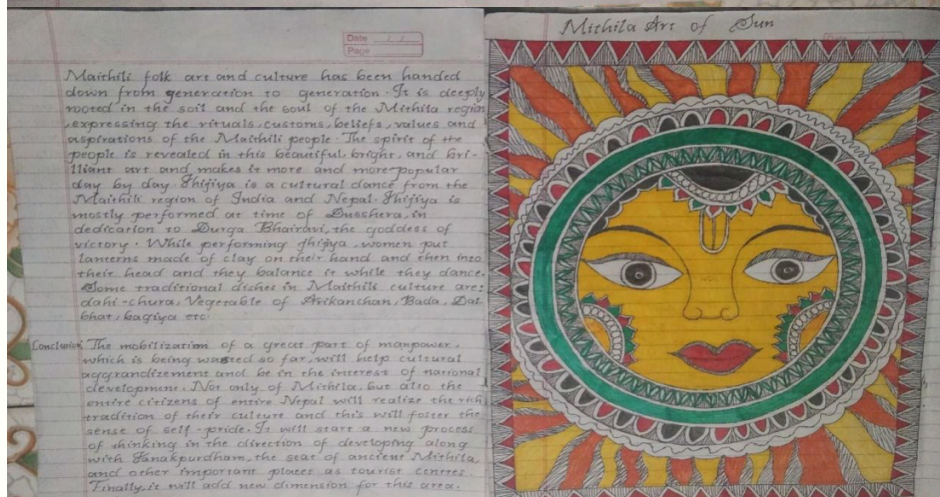 Date / /
Page
Maithili folk art and culture has been handed
down from generation to generation. It is deeply
rooted in the soil and the soul of the Mithila region
, expressing the rituals, customs, beliefs, values and
aspirations of the Maithili people. The spirit of the
people is revealed in this beautiful, bright, and bri-
lliant art and makes it more and more popular
day by day. Jhijiya is a cultural dance from the
Maithili region of India and Nepal. Jhijiya is
mostly performed at time of Dusshera, in
dedication to Durga Bhairavi, the goddess of
victory. While performing jhijiya, women put
lanterns made of clay on their hand and then into
their head and they balance it while they dance.
Some traditional dishes in Maithili culture are:
dahi-chura, Vegetable of Arikanchan, Bada, Dal
bhat, bagiya etc.
Conclusion: The mobilization of a great part of manpower,
which is being wasted so far, will help cultural
aggrandizement and be in the interest of national
development. Not only of Mithila, but also the
entire citizens of entire Nepal will realize the rich
tradition of their culture and this will foster the
sense of self-pride. It will start a new process
of thinking in the direction of developing along
with Janakpurdham, the seat of ancient Mithila,
and other important places as tourist centres.
Finally, it will add new dimension for this area.
Mithila Art of Sun